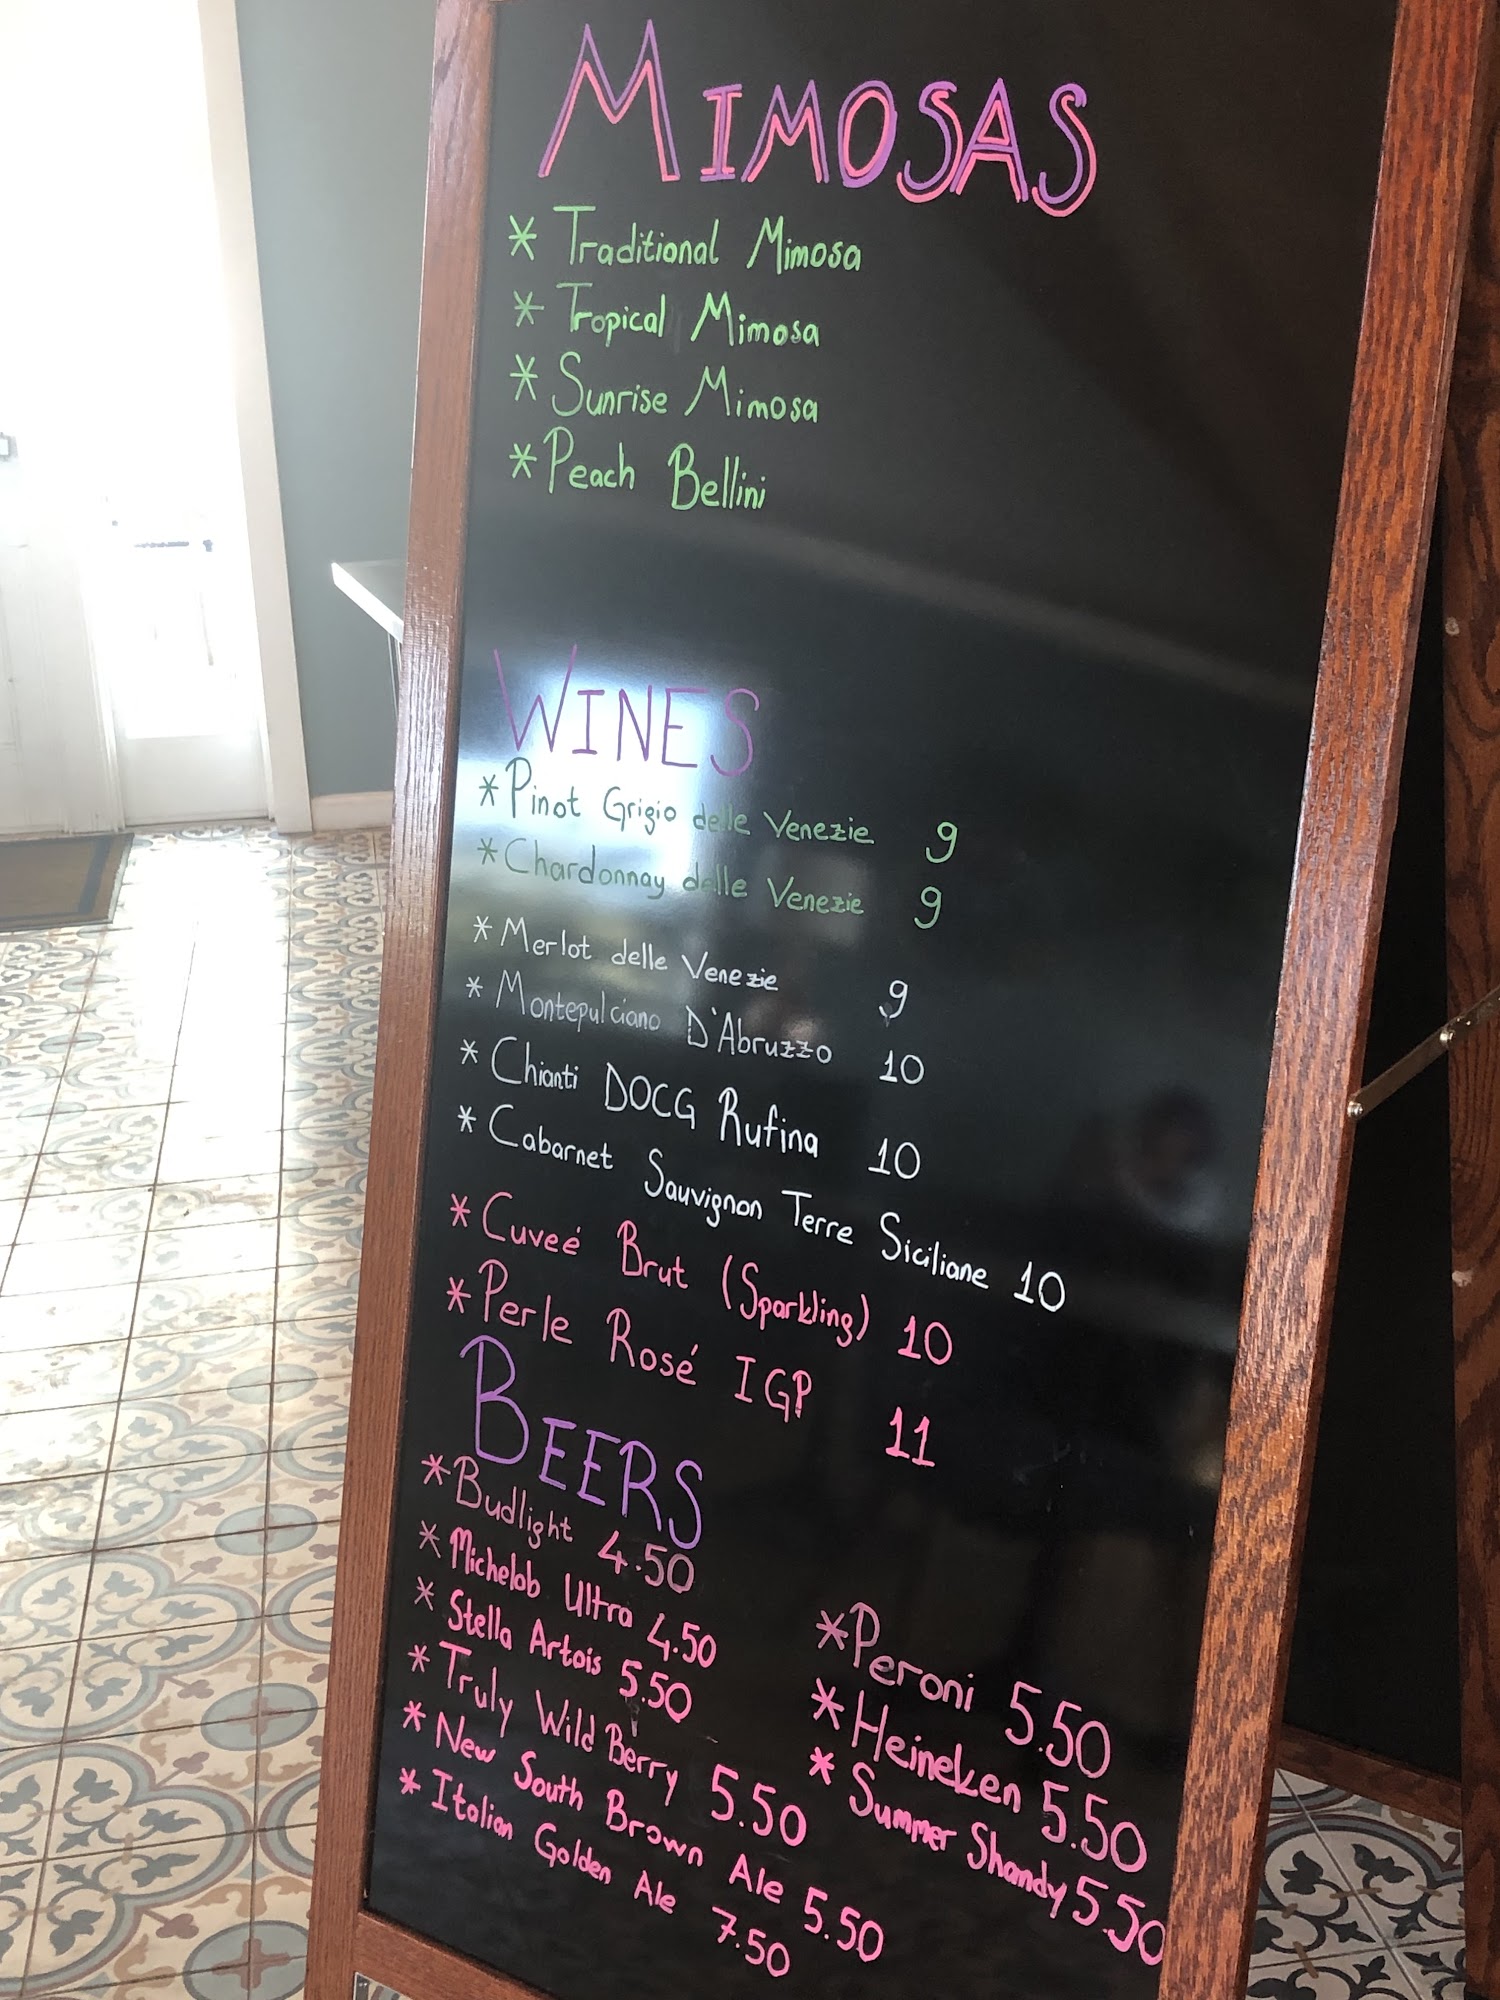 MIMOSAS
* Traditional Mimosa
* Tropical Mimosa
* Sunrise Mimosa
* Peach Bellini
WINES
* Pinot Grigio delle Venezie 9
* Chardonnay delle Venezie 9
* Merlot delle Venezie 9
* Montepulciano D'Abruzzo 10
* Chianti DOCG Rufina 10
* Cabarnet Sauvignon Terre Siciliane 10
* Cuveé Brut (Sparkling) 10
* Perle Rosé IGP 11
BEERS
* Budlight 4.50
* Michelob Ultra 4.50
* Stella Artois 5.50
* Truly Wild Berry 5.50
* New South Brown Ale 5.50
* Italian Golden Ale 7.50
* Peroni 5.50
* Heineken 5.50
* Summer Shandy 5.50